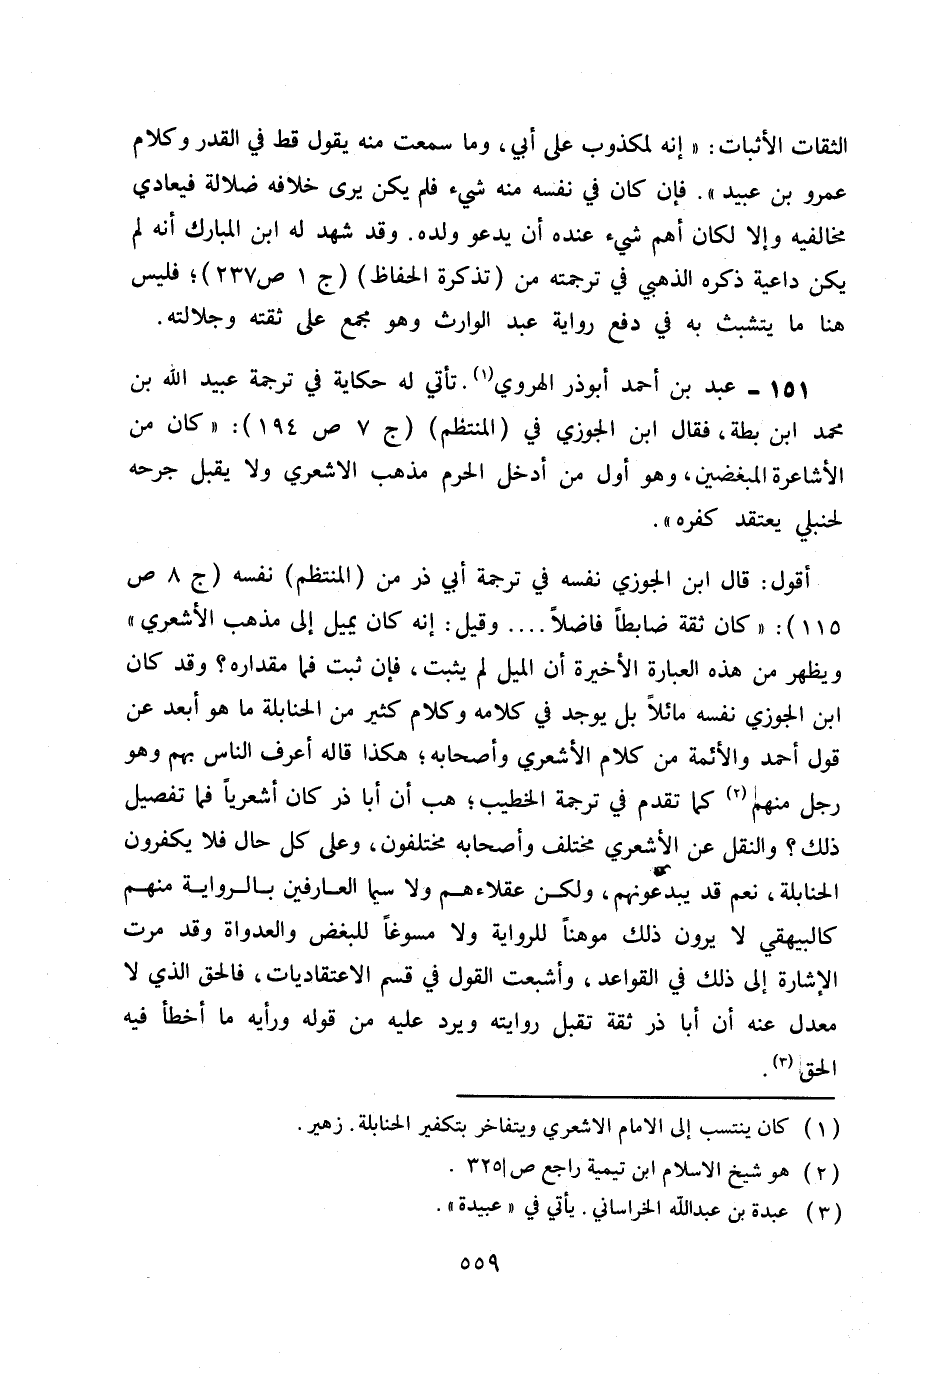 الثقات الأثبات: « إنه لمكذوب على أبي، وما سمعت منه يقول قط في القدر وكلام
عمرو بن عبيد ». فإن كان في نفسه منه شيء فلم يكن يرى خلافه ضلالة فيعادي
مخالفيه وإلا لكان أهم شيء عنده أن يدعو ولده. وقد شهد له ابن المبارك أنه لم
يكن داعية ذكره الذهبي في ترجمته من (تذكرة الحفاظ) (ج ١ ص٢٣٧)؛ فليس
هنا ما يتشبث به في دفع رواية عبد الوارث وهو مجمع على ثقته وجلالته.
١٥١ - عبد بن أحمد أبوذر الهروي(١). تأتي له حكاية في ترجمة عبيد الله بن
محمد ابن بطة، فقال ابن الجوزي في (المنتظم) (ج ٧ ص ١٩٤): « كان من
الأشاعرة المبغضين، وهو أول من أدخل الحرم مذهب الاشعري ولا يقبل جرحه
لحنبلي يعتقد كفره».
أقول: قال ابن الجوزي نفسه في ترجمة أبي ذر من (المنتظم) نفسه (ج ٨ ص
١١٥): « كان ثقة ضابطاً فاضلاً.... وقيل: إنه كان يميل إلى مذهب الأشعري»
ويظهر من هذه العبارة الأخيرة أن الميل لم يثبت، فإن ثبت فما مقداره؟ وقد كان
ابن الجوزي نفسه مائلاً بل يوجد في كلامه وكلام كثير من الحنابلة ما هو أبعد عن
قول أحمد والأئمة من كلام الأشعري وأصحابه؛ هكذا قاله أعرف الناس بهم وهو
رجل منهم(٢) كما تقدم في ترجمة الخطيب؛ هب أن أبا ذر كان أشعرياً فما تفصيل
ذلك؟ والنقل عن الأشعري مختلف وأصحابه مختلفون، وعلى كل حال فلا يكفرون
الحنابلة، نعم قد يبدعونهم، ولكن عقلاءهم ولا سيما العارفين بالرواية منهم
كالبيهقي لا يرون ذلك موهناً للرواية ولا مسوغاً للبغض والعدواة وقد مرت
الإشارة إلى ذلك في القواعد، وأشبعت القول في قسم الاعتقاديات، فالحق الذي لا
معدل عنه أن أبا ذر ثقة تقبل روايته ويرد عليه من قوله ورأيه ما أخطأ فيه
الحق(٣).
(١) كان ينتسب إلى الامام الاشعري ويتفاخر بتكفير الحنابلة. زهير.
(٢) هو شيخ الاسلام ابن تيمية راجع ص٣٢٥ .
(٣) عبدة بن عبدالله الخراساني. يأتي في «عبيدة».
٥٥٩